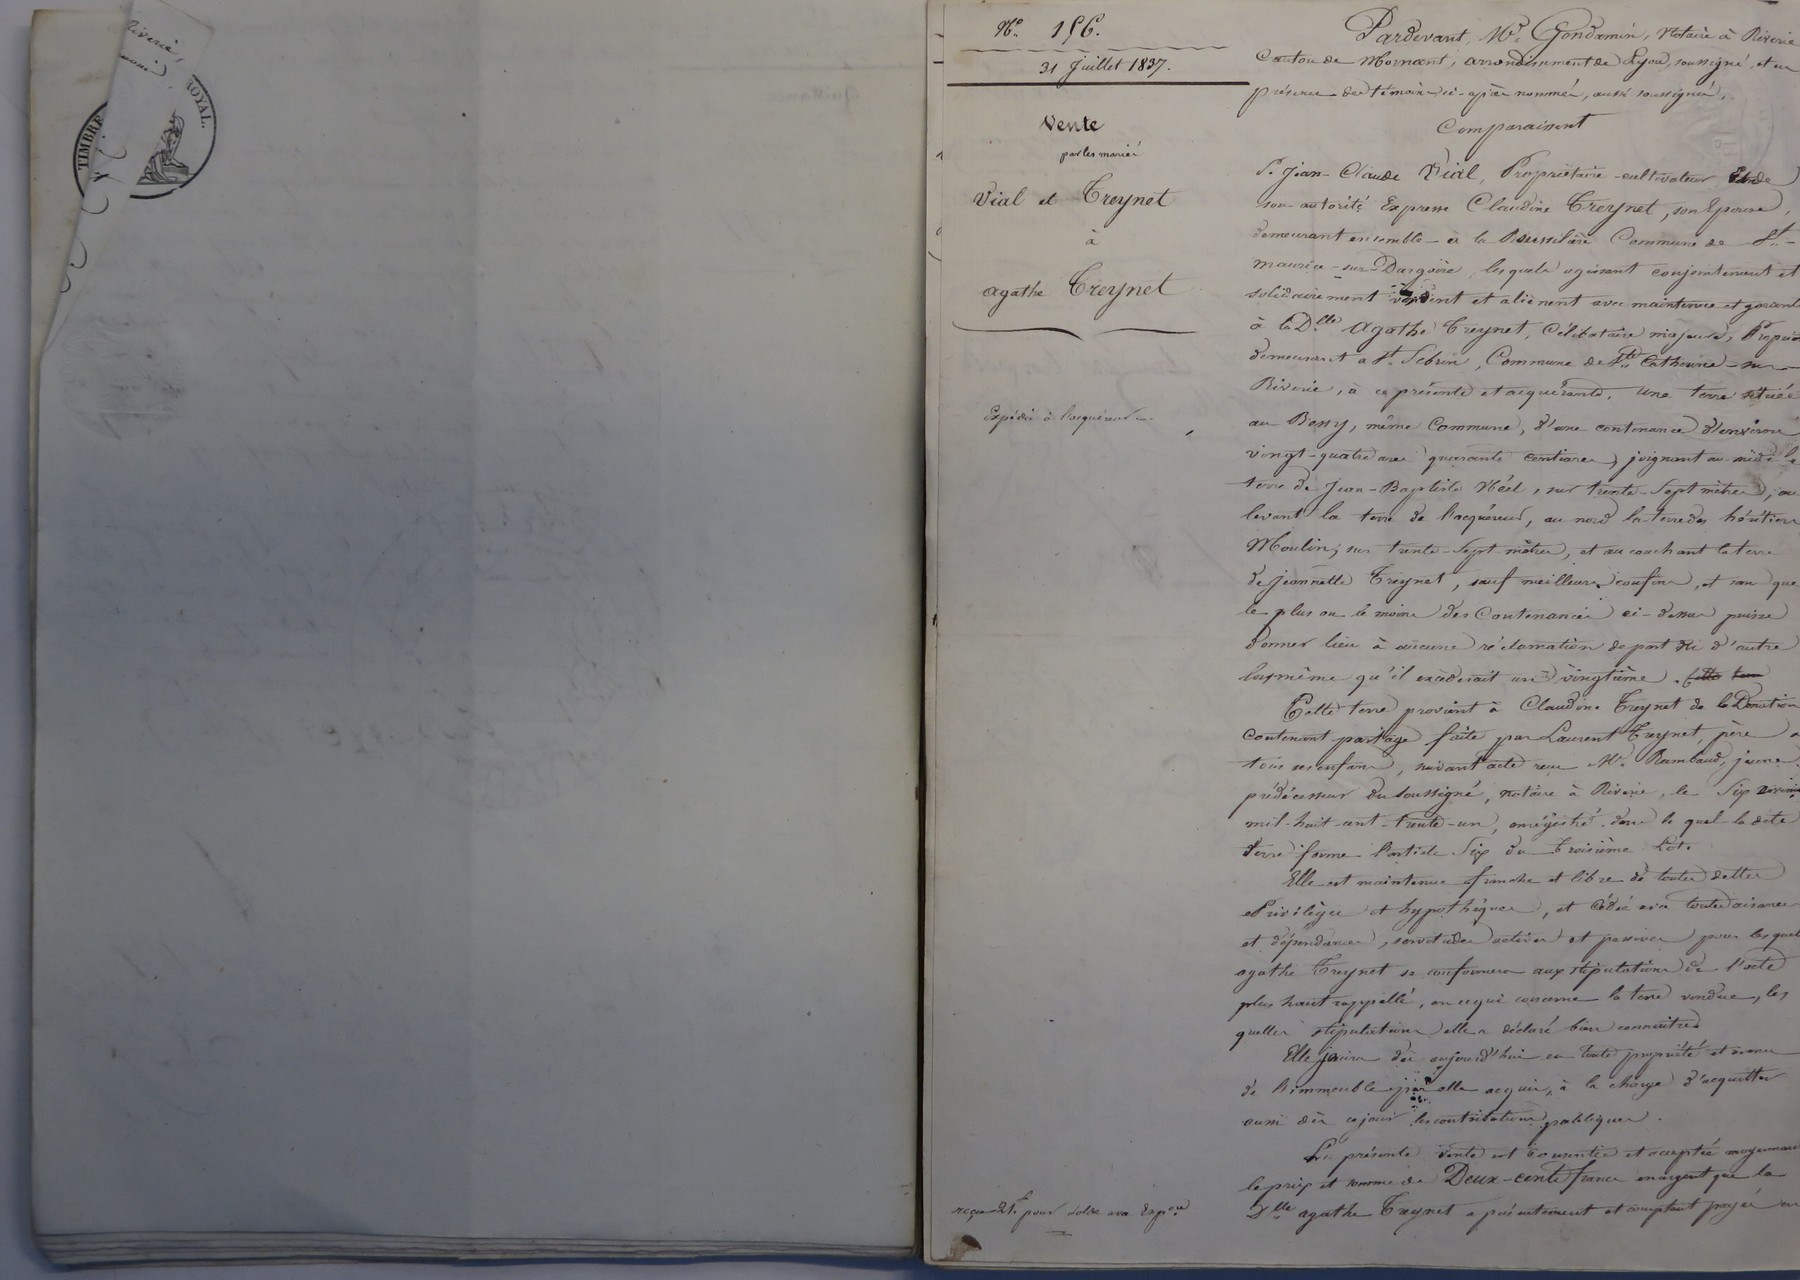 Riverie,
TIMBRE ROYAL.
N.º 156.
31 Juillet 1837.
Vente
par les mariés
Vial et Treynet
à
Agathe Treynet
Expédié à l'acquéreur
reçu 21.f pour solde avec Exp.on
Pardevant, M.e Gondamin, Notaire à Riverie
Canton de Mornant, arrondissement de Lyon, soussigné, et en
présence des témoins ci-après nommés, aussi soussignés,
Comparaissent
S.r Jean-Claude Vial, Propriétaire-cultivateur Et de
son autorité Expresse Claudine Treynet, son Epouse,
demeurant ensemble à la Commune de St-
Maurice-sur-Dargoire, lesquels agissant conjointement et
solidairement vendent et aliènent avec maintenue et garantie
à la D.lle Agathe Treynet, Célibataire majeure, Propriét
demeurant à St. Sebrin, Commune de Ste Catherine-sur-
Riverie, à ce présente et acquérante, Une terre située
au Bossy, même Commune, d'une contenance d'environ
vingt-quatre ares quarante centiares, joignant au midi la
terre de Jean-Baptiste Néel, sur trente-sept mètres, au
levant la terre de l'acquéreur, au nord la terre des héritiers
Moulin, sur trente-sept mètres, et au couchant la terre
de Jeannette Treynet, sauf meilleurs confins, et sans que
le plus ou le moins des Contenances ci-dessus puisse
donner lieu à aucune réclamation de part ni d'autre
lors même qu'il excéderait un vingtième. Cette terre
Cette terre provient à Claudine Treynet de la Donation
Contenant partage faite par Laurent Treynet, père à
tous ses enfans, suivant acte reçu M.e Rambaud, jeune
prédécesseur du soussigné, notaire à Riverie, le Six
mil-huit-cent-trente-un, enregistré, dans le quel la dite
terre forme l'article Six du troisième Lot.
Elle est maintenue franche et libre de toutes dettes
Privilèges et hypothèques, et Cédée avec toutes aisances
et dépendances, servitudes actives et passives pour lesquelles
agathe Treynet se conformera aux stipulations de l'acte
plus haut rappellé, en ce qui concerne la terre vendue, les
quelles stipulations elle a déclaré bien connaître.
Elle jouira dès aujourd'hui en toute propriété et revenu
de l'immeuble par elle acquis, à la charge d'acquitter
aussi dès ce jour les contributions publiques.
La présente vente est consentie et acceptée moyennant
le prix et somme de Deux-cents francs en argent que la
D.lle agathe Treynet a présentement et comptant payée en